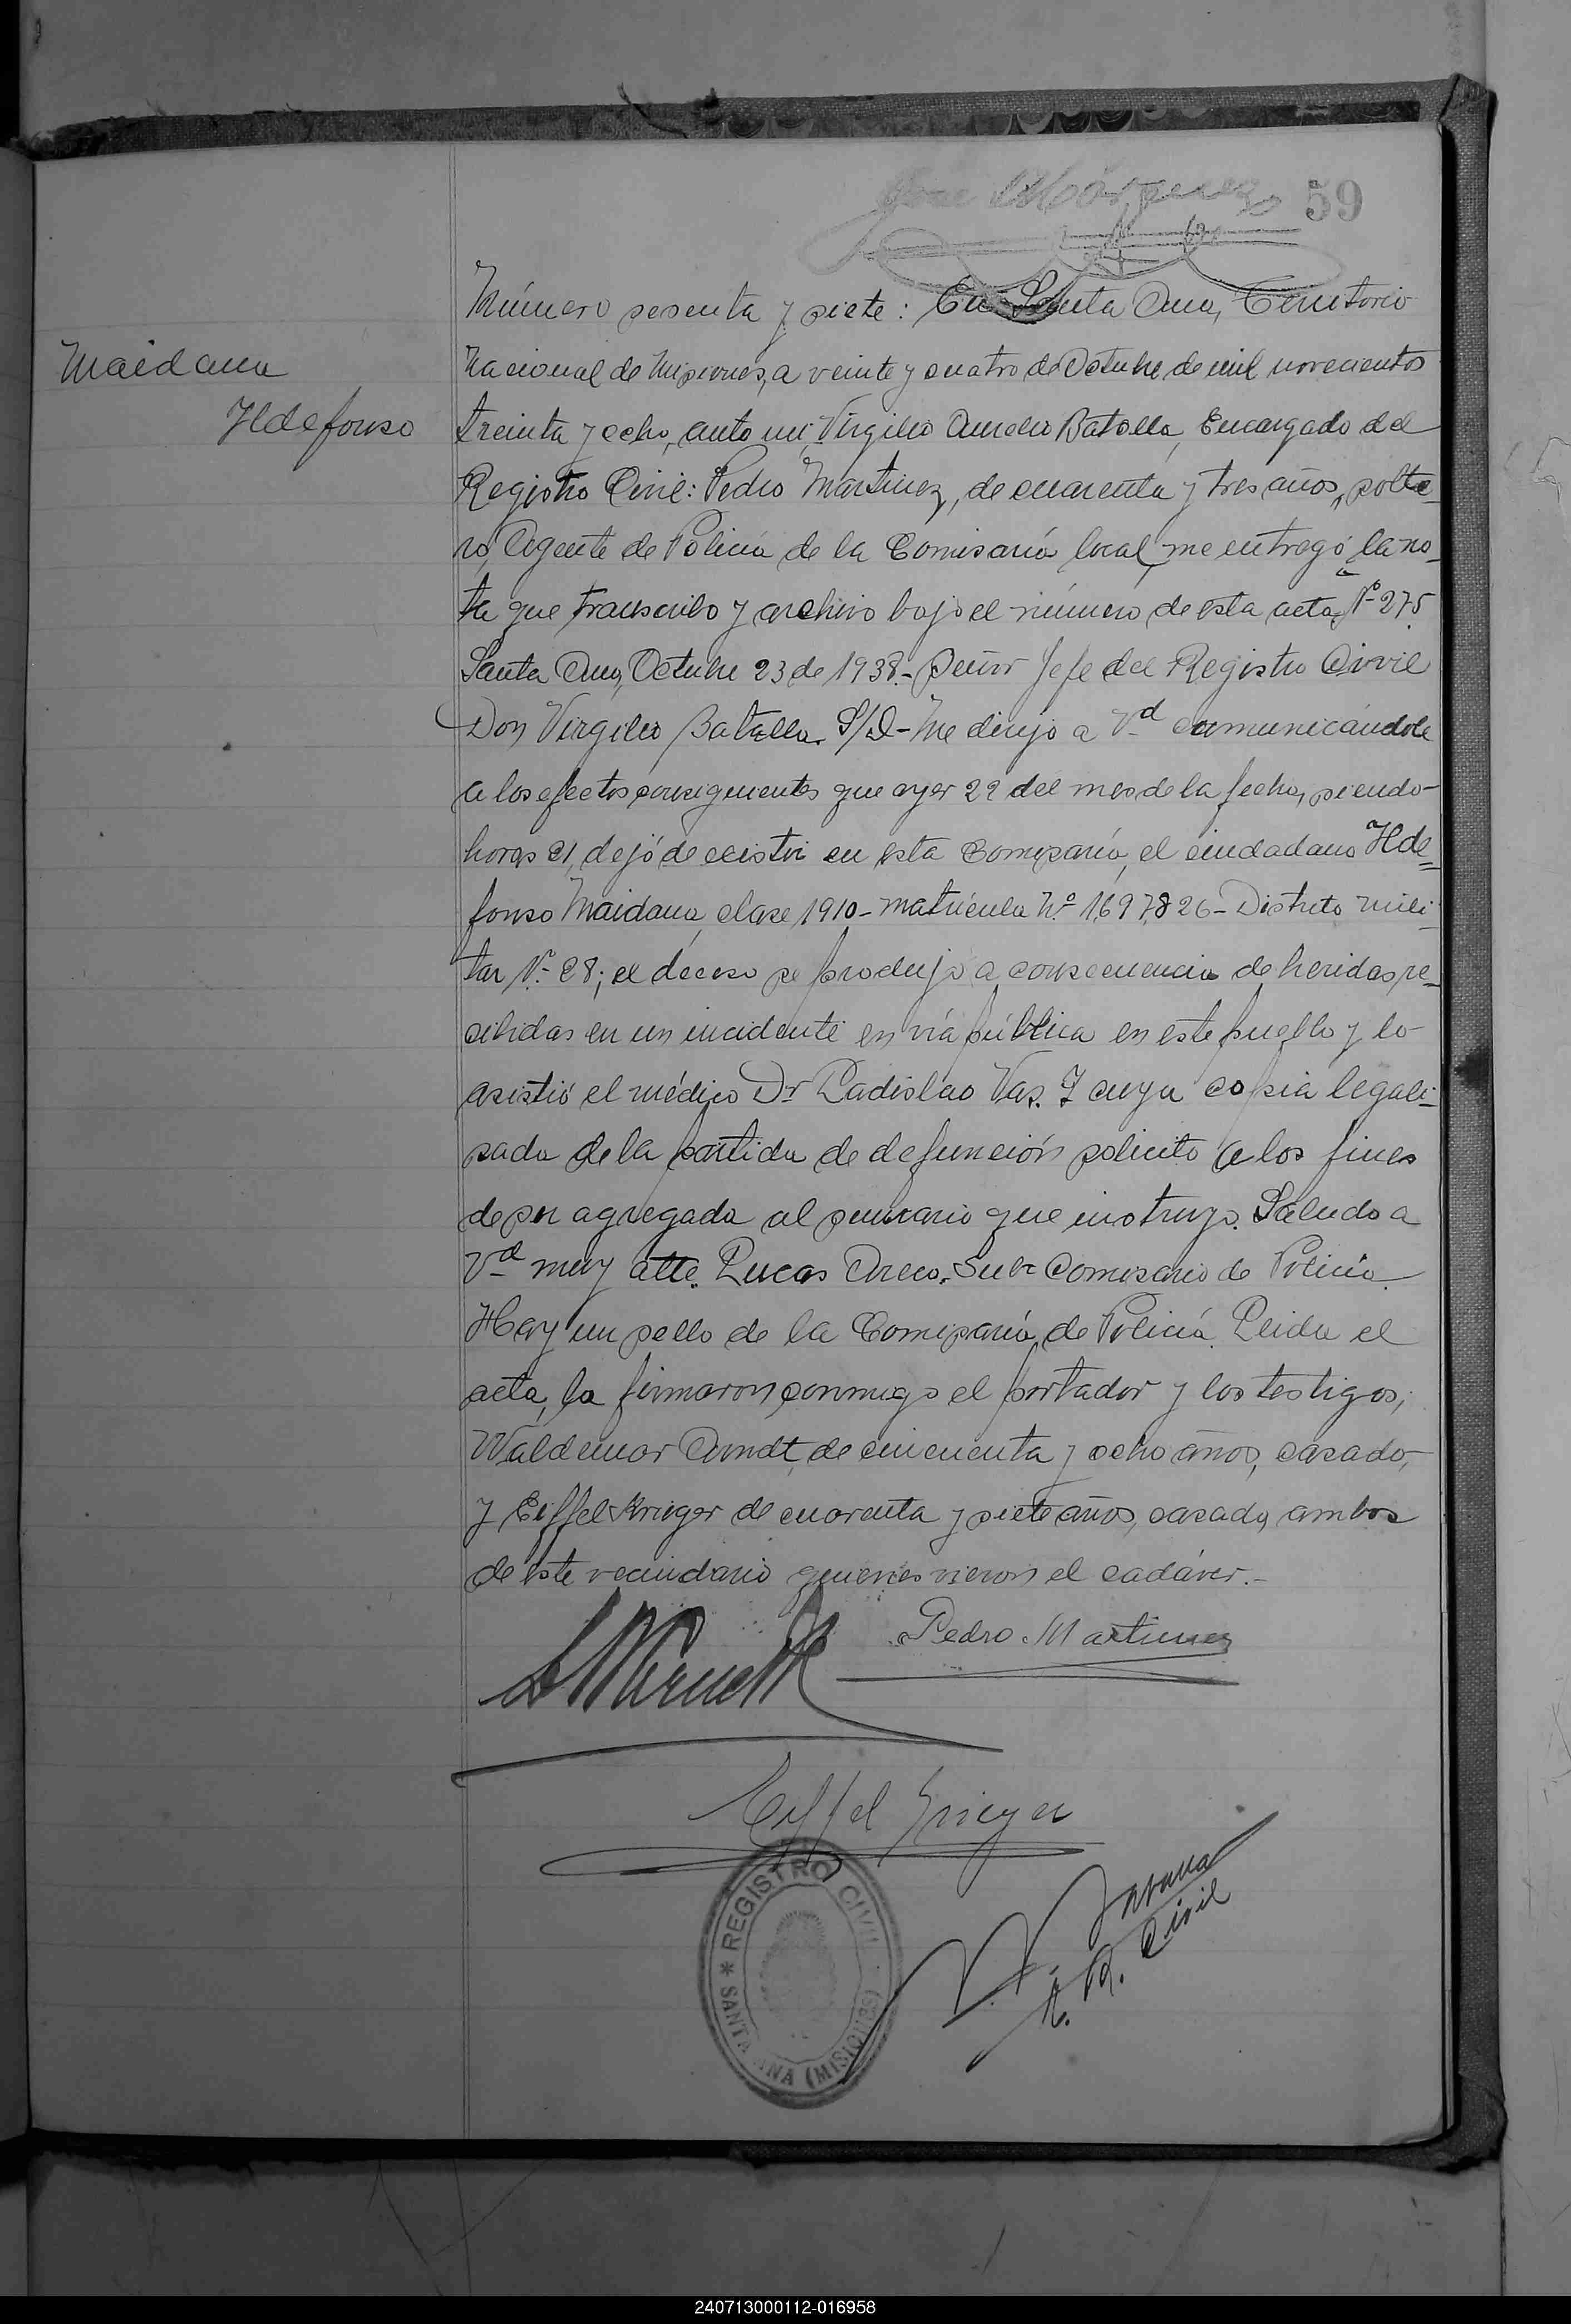 59
Número sesenta y siete: En Santa Ana, Territorio
Maidana
Ildefonso
Nacional de Misiones, a veinte y cuatro de Octubre de mil novecientos
treinta y ocho, ante mi, Virgilio Aurelio Batalla, Encargado del
Registro Civil: Pedro Martinez, de cuarenta y tres años, solte-
ro, Agente de Policía de la Comisaría local, me entregó la no-
ta que transcribo y archivo bajo el número de esta acta, Nº 275.
Santa Ana, Octubre 23 de 1938.- Señor Jefe del Registro Civil
Don Virgilio Batalla. S/D- Me dirijo a Vd comunicándole
a los efectos consiguientes que ayer 22 del mes de la fecha, siendo-
horas 21, dejó de existir en esta Comisaría, el ciudadano Ilde-
fonso Maidana, clase 1910- matrícula Nº 1697826- Distrito mili-
tar Nº 28; el deceso se produjo a consecuencia de heridas re-
cibidas en un incidente en vía pública en este pueblo y lo-
asistió el médico Dr Ladislao Vas. Y cuya copia legali-
sada de la partida de defunción solicito a los fines
de ser agregada al sumario que instruyo. Saludo a
Vd muy atte. Lucas Areco. Sub-Comisario de Policía.
Hay un sello de la Comisaría de Policía. Leida el
acta, la firmaron conmigo el portador y los testigos,
Waldemar Arndt, de cincuenta y ocho años, casado,
y Eiffel Krieger de cuarenta y siete años, casado, ambos
de este vecindario quienes vieron el cadáver.-
Pedro Martinez
Eiffel Krieger
REGISTRO CIVIL
* SANTA ANA (MISIONES)
R. Civil
240713000112-016958